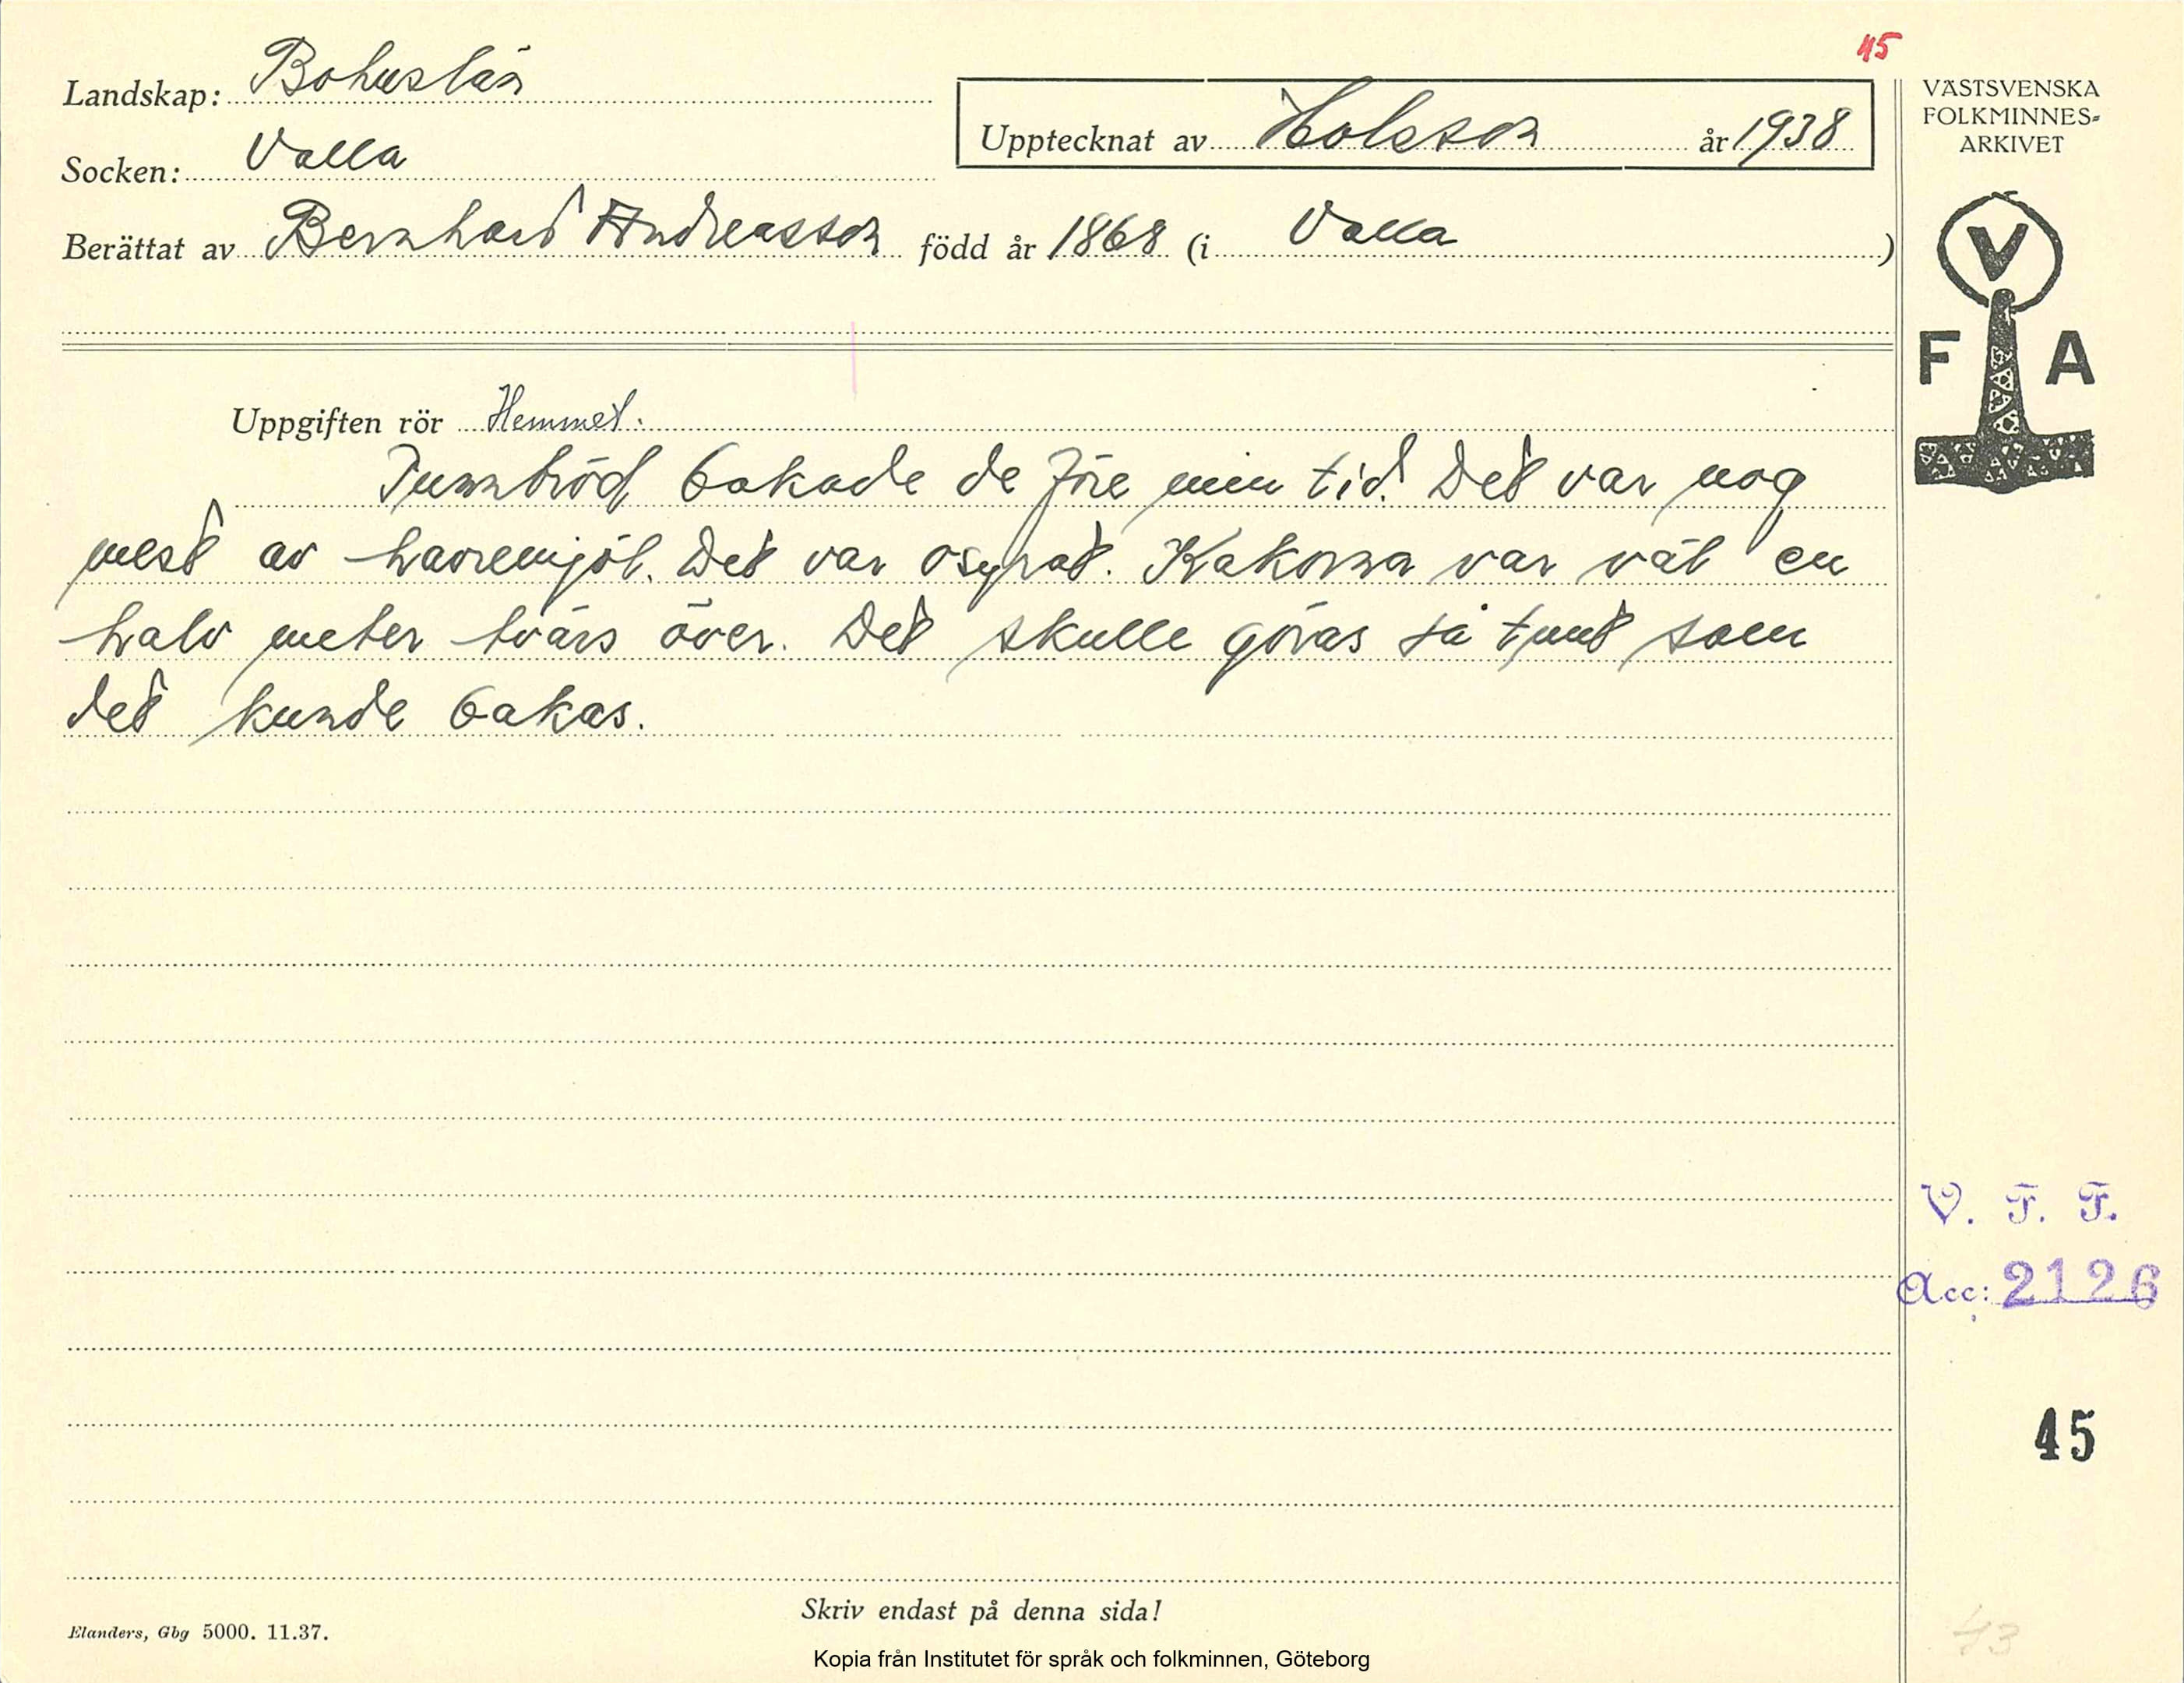 45
Landskap: Bohuslän
Socken: Valla
Upptecknat av Holsson år 1938
Berättat av Bernhard Andreasson född år 1868 (i Valla )
VÄSTSVENSKA
FOLKMINNES-
ARKIVET
V
F A
Uppgiften rör Hemmet.
Tunnbröd bakade de före min tid. Det var nog
mest av havremjöl. Det var osyrat. Kakorna var väl en
halv meter tvärs över. Det skulle göras så tunt som
det kunde bakas.
V. F. F.
Acc: 2126
45
Skriv endast på denna sida!
Elanders, Gbg 5000. 11.37.
43
Kopia från Institutet för språk och folkminnen, Göteborg